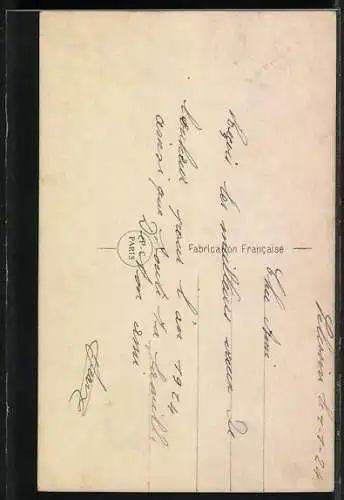 1-1-24
Cher Ami
Reçois les meilleurs vœux de
bonheur pour l'an 1924
ainsi que toute ta famille
De ton ami
Fabrication Française
PARIS